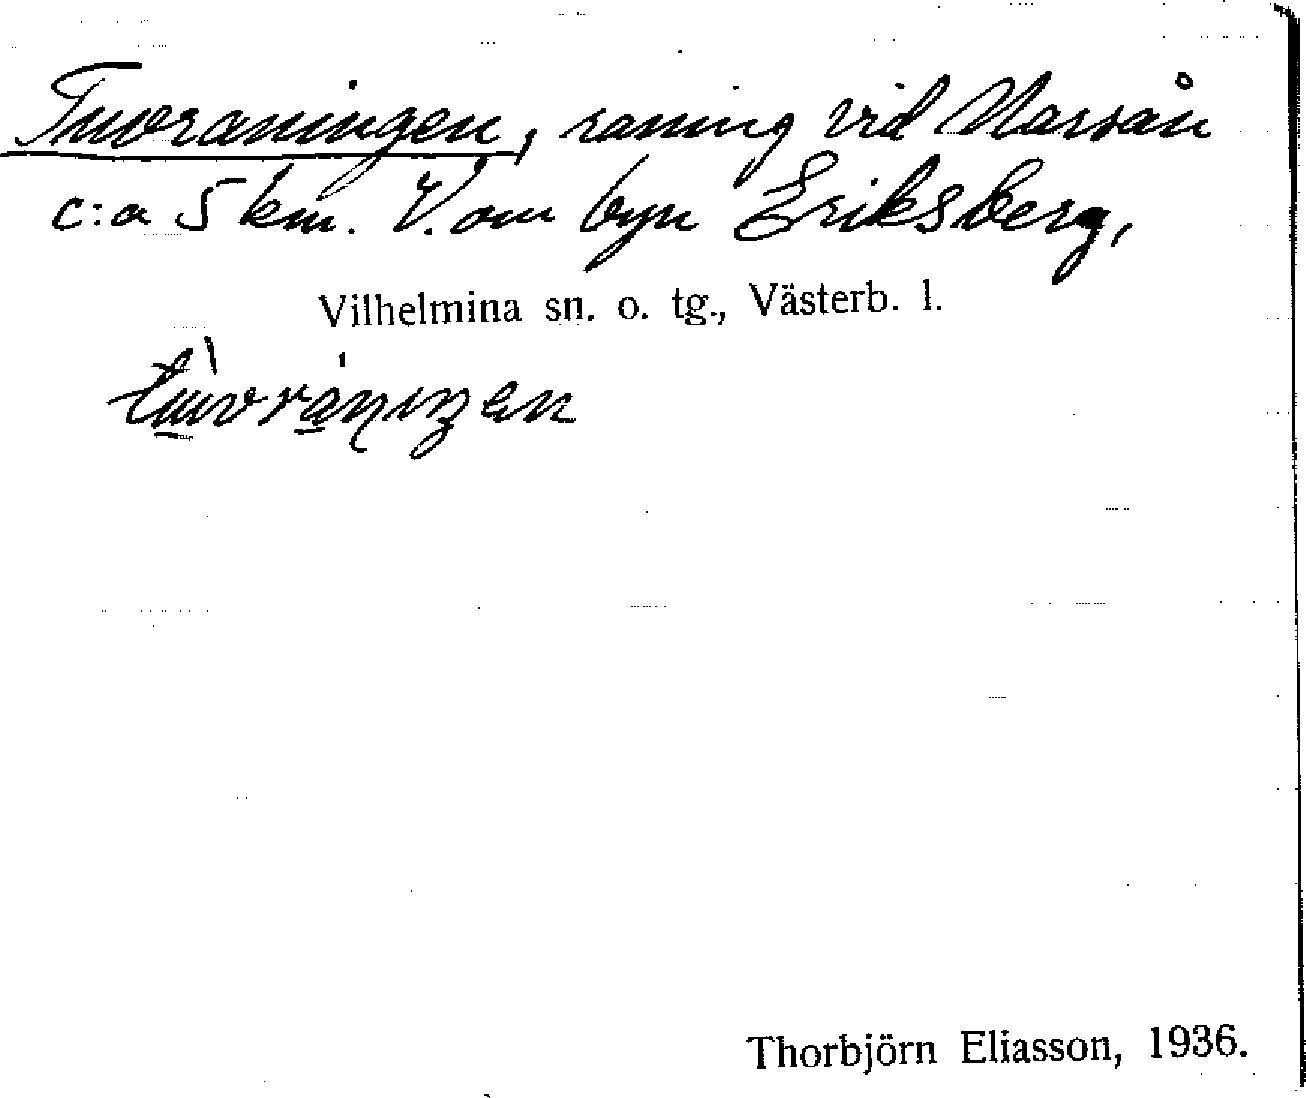 Tuvraningen, raning vid Marsån
c:a 5 km. V. om byn Eriksberg,
Vilhelmina sn. o. tg., Västerb. l.
Thorbjörn Eliasson, 1936.